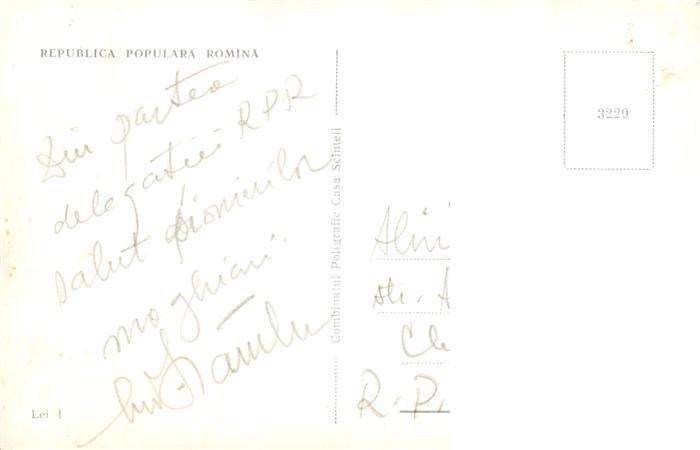 REPUBLICA POPULARĂ ROMÎNĂ
Din partea
delegatiei RPR
salut pionierilor
maghiari.
3229
Combinatul Poligrafic Casa Scînteii
Alin
str. A
Cl
R. P.
Lei 1